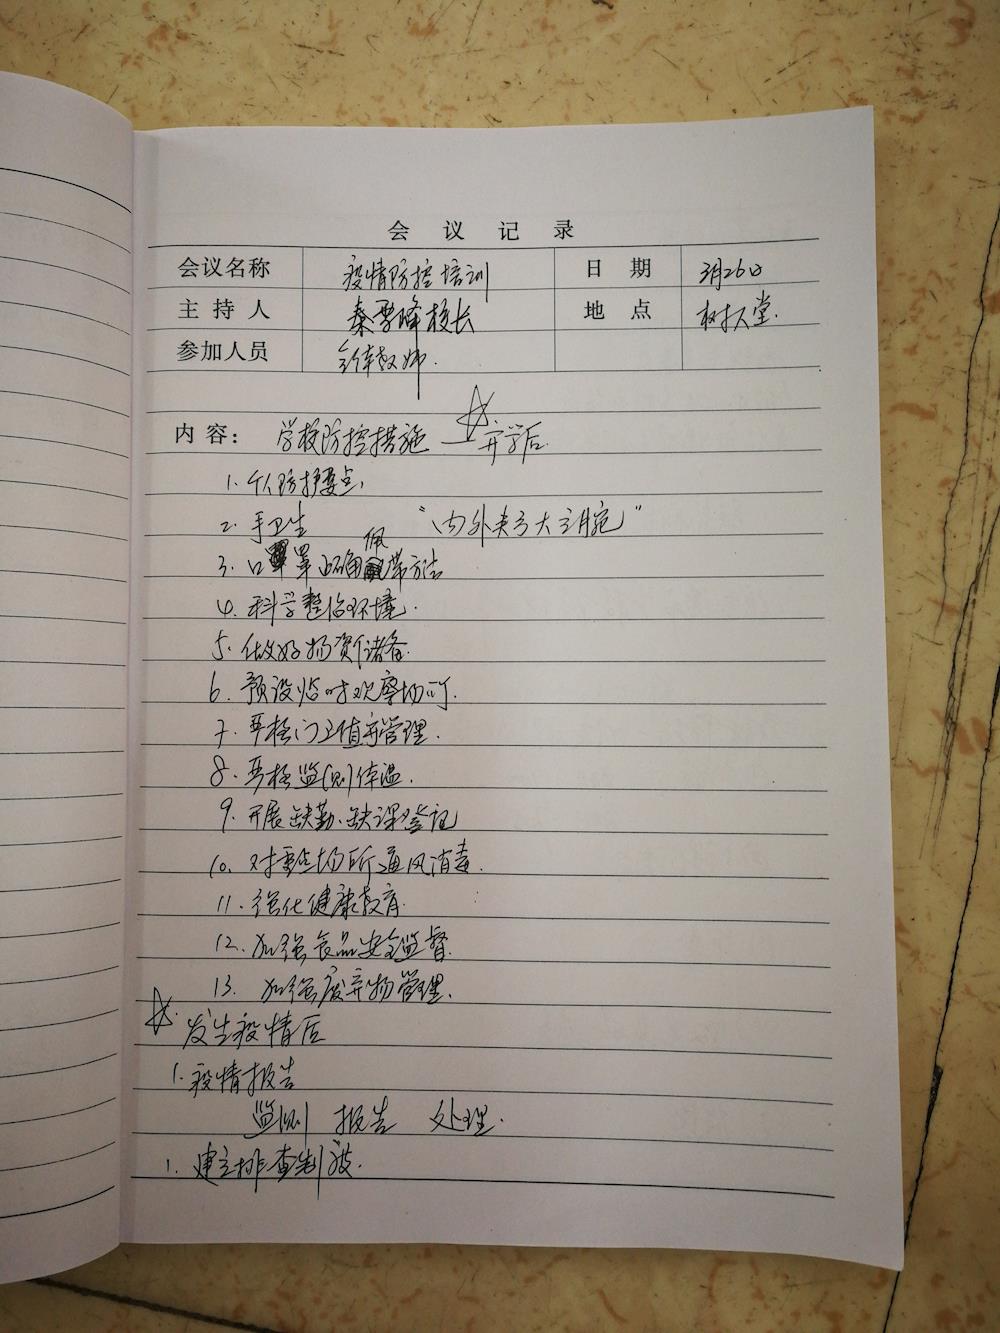 会议记录
会议名称 疫情防控培训 日期 3月26日
主持人 秦雪峰校长 地点 树人堂.
参加人员 全体教师.
内容： 学校防控措施 — ☆开学后
1. 个人防护要点.
2. 手卫生 "内外夹弓大立腕"
3. 口罩正确佩带方法
4. 科学整治环境.
5. 做好物资储备
6. 预设临时观察场所.
7. 严格门卫值守管理.
8. 严格监测体温.
9. 开展缺勤、缺课登记
10. 对重点场所通风消毒.
11. 强化健康教育
12. 加强食品安全监督.
13. 加强废弃物管理.
☆ 发生疫情后
1. 疫情报告
监测 报告 处理.
1. 建立排查制度.